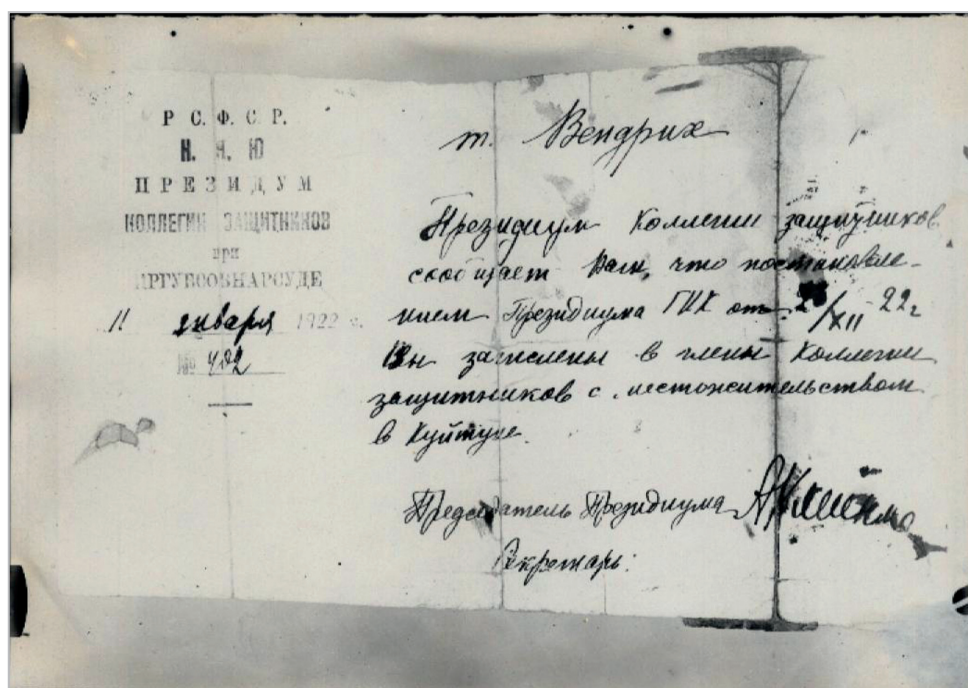 Р С. Ф. С. Р.
Н. К. Ю
ПРЕЗИДУМ
КОЛЛЕГИИ ЗАЩИТНИКОВ
при
ИРГУБСОВНАРСУДЕ
11 января 1922 г.
№ 402
т. Вендрих
Президиум Коллегии защитников
сообщает Вам, что постановле-
нием Президиума ГИК от 28/XII-22г
Вы зачислены в члены Коллегии
защитников с местожительством
в Куйтуне.
Председатель Президиума
Секретарь: